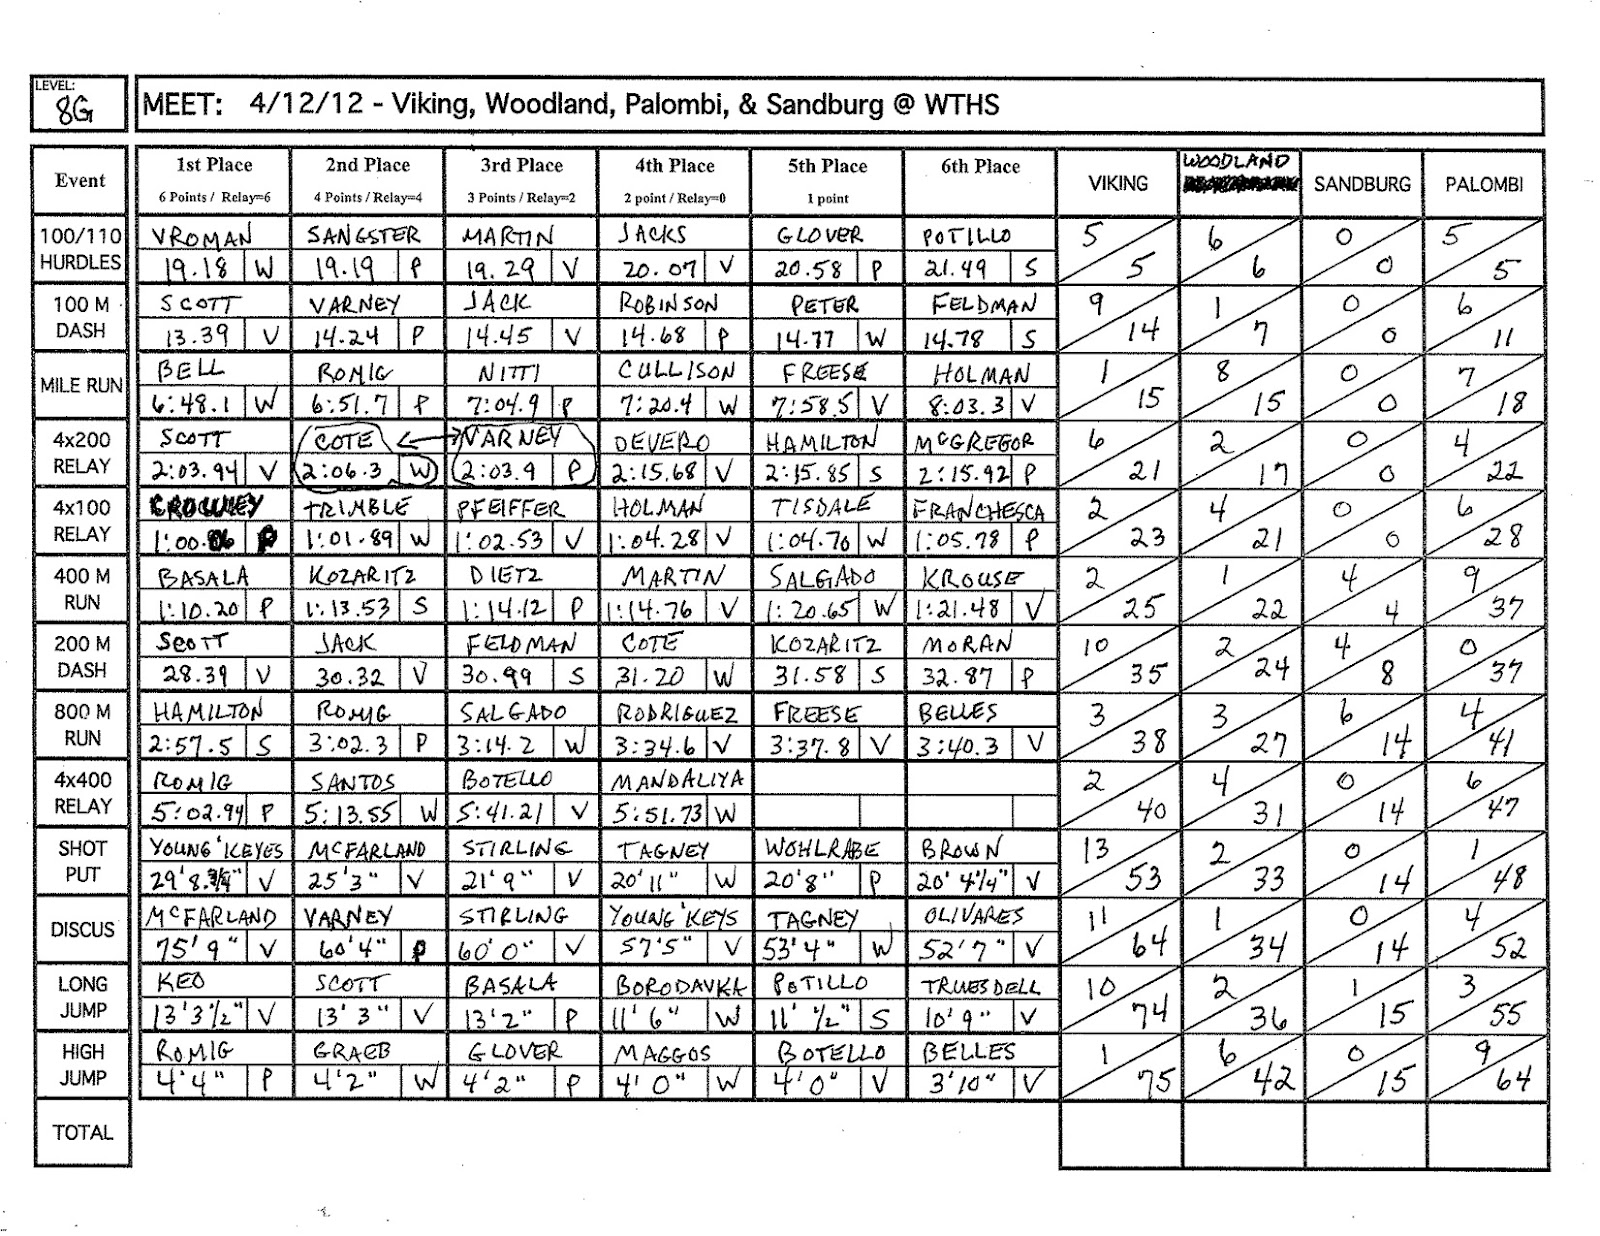 LEVEL:
8G
MEET: 4/12/12 - Viking, Woodland, Palombi, & Sandburg @ WTHS
Event 1st Place 2nd Place 3rd Place 4th Place 5th Place 6th Place VIKING WOODLAND SANDBURG PALOMBI
6 Points / Relay=6 4 Points / Relay=4 3 Points / Relay=2 2 point / Relay=0 1 point
100/110 VROMAN SANGSTER MARTIN JACKS GLOVER POTILLO 5 6 0 5
HURDLES 19.18 W 19.19 P 19.29 V 20.07 V 20.58 P 21.49 S 5 6 0 5
100 M SCOTT VARNEY JACK ROBINSON PETER FELDMAN 9 1 0 6
DASH 13.39 V 14.24 P 14.45 V 14.68 P 14.77 W 14.78 S 14 7 0 11
MILE RUN BELL ROMIG NITTI CULLISON FREESE HOLMAN 1 8 0 7
6:48.1 W 6:51.7 P 7:04.9 P 7:20.4 W 7:58.5 V 8:03.3 V 15 15 0 18
4x200 SCOTT COTE VARNEY DEVERO HAMILTON McGREGOR 6 2 0 4
RELAY 2:03.94 V 2:06.3 W 2:03.9 P 2:15.68 V 2:15.85 S 2:15.92 P 21 17 0 22
4x100 TRIMBLE PFEIFFER HOLMAN TISDALE FRANCHESCA 2 4 0 6
RELAY 1:00.86 P 1:01.89 W 1:02.53 V 1:04.28 V 1:04.70 W 1:05.78 P 23 21 0 28
400 M BASALA KOZARITZ DIETZ MARTIN SALGADO KROUSE 2 1 4 9
RUN 1:10.20 P 1:13.53 S 1:14.12 P 1:14.76 V 1:20.65 W 1:21.48 V 25 22 4 37
200 M SCOTT JACK FELDMAN COTE KOZARITZ MORAN 10 2 4 0
DASH 28.39 V 30.32 V 30.99 S 31.20 W 31.58 S 32.87 P 35 24 8 37
800 M HAMILTON ROMIG SALGADO RODRIGUEZ FREESE BELLES 3 3 6 4
RUN 2:57.5 S 3:02.3 P 3:14.2 W 3:34.6 V 3:37.8 V 3:40.3 V 38 27 14 41
4x400 ROMIG SANTOS BOTELLO MANDALIYA 2 4 0 6
RELAY 5:02.94 P 5:13.55 W 5:41.21 V 5:51.73 W 40 31 14 47
SHOT YOUNG'KEYES McFARLAND STIRLING TAGNEY WOHLRABE BROWN 13 2 0 1
PUT 29'8.3/4" V 25'3" V 21'9" V 20'11" W 20'8" P 20'4 1/4" V 53 33 14 48
DISCUS McFARLAND VARNEY STIRLING YOUNG'KEYS TAGNEY OLIVARES 11 1 0 4
75'9" V 60'4" P 60'0" V 57'5" V 53'4" W 52'7" V 64 34 14 52
LONG KEO SCOTT BASALA BORODAVKA POTILLO TRUESDELL 10 2 1 3
JUMP 13'3 1/2" V 13'3" V 13'2" P 11'6" W 11' 1/2" S 10'9" V 74 36 15 55
HIGH ROMIG GRAEB GLOVER MAGGOS BOTELLO BELLES 1 6 0 9
JUMP 4'4" P 4'2" W 4'2" P 4'0" W 4'0" V 3'10" V 75 42 15 64
TOTAL